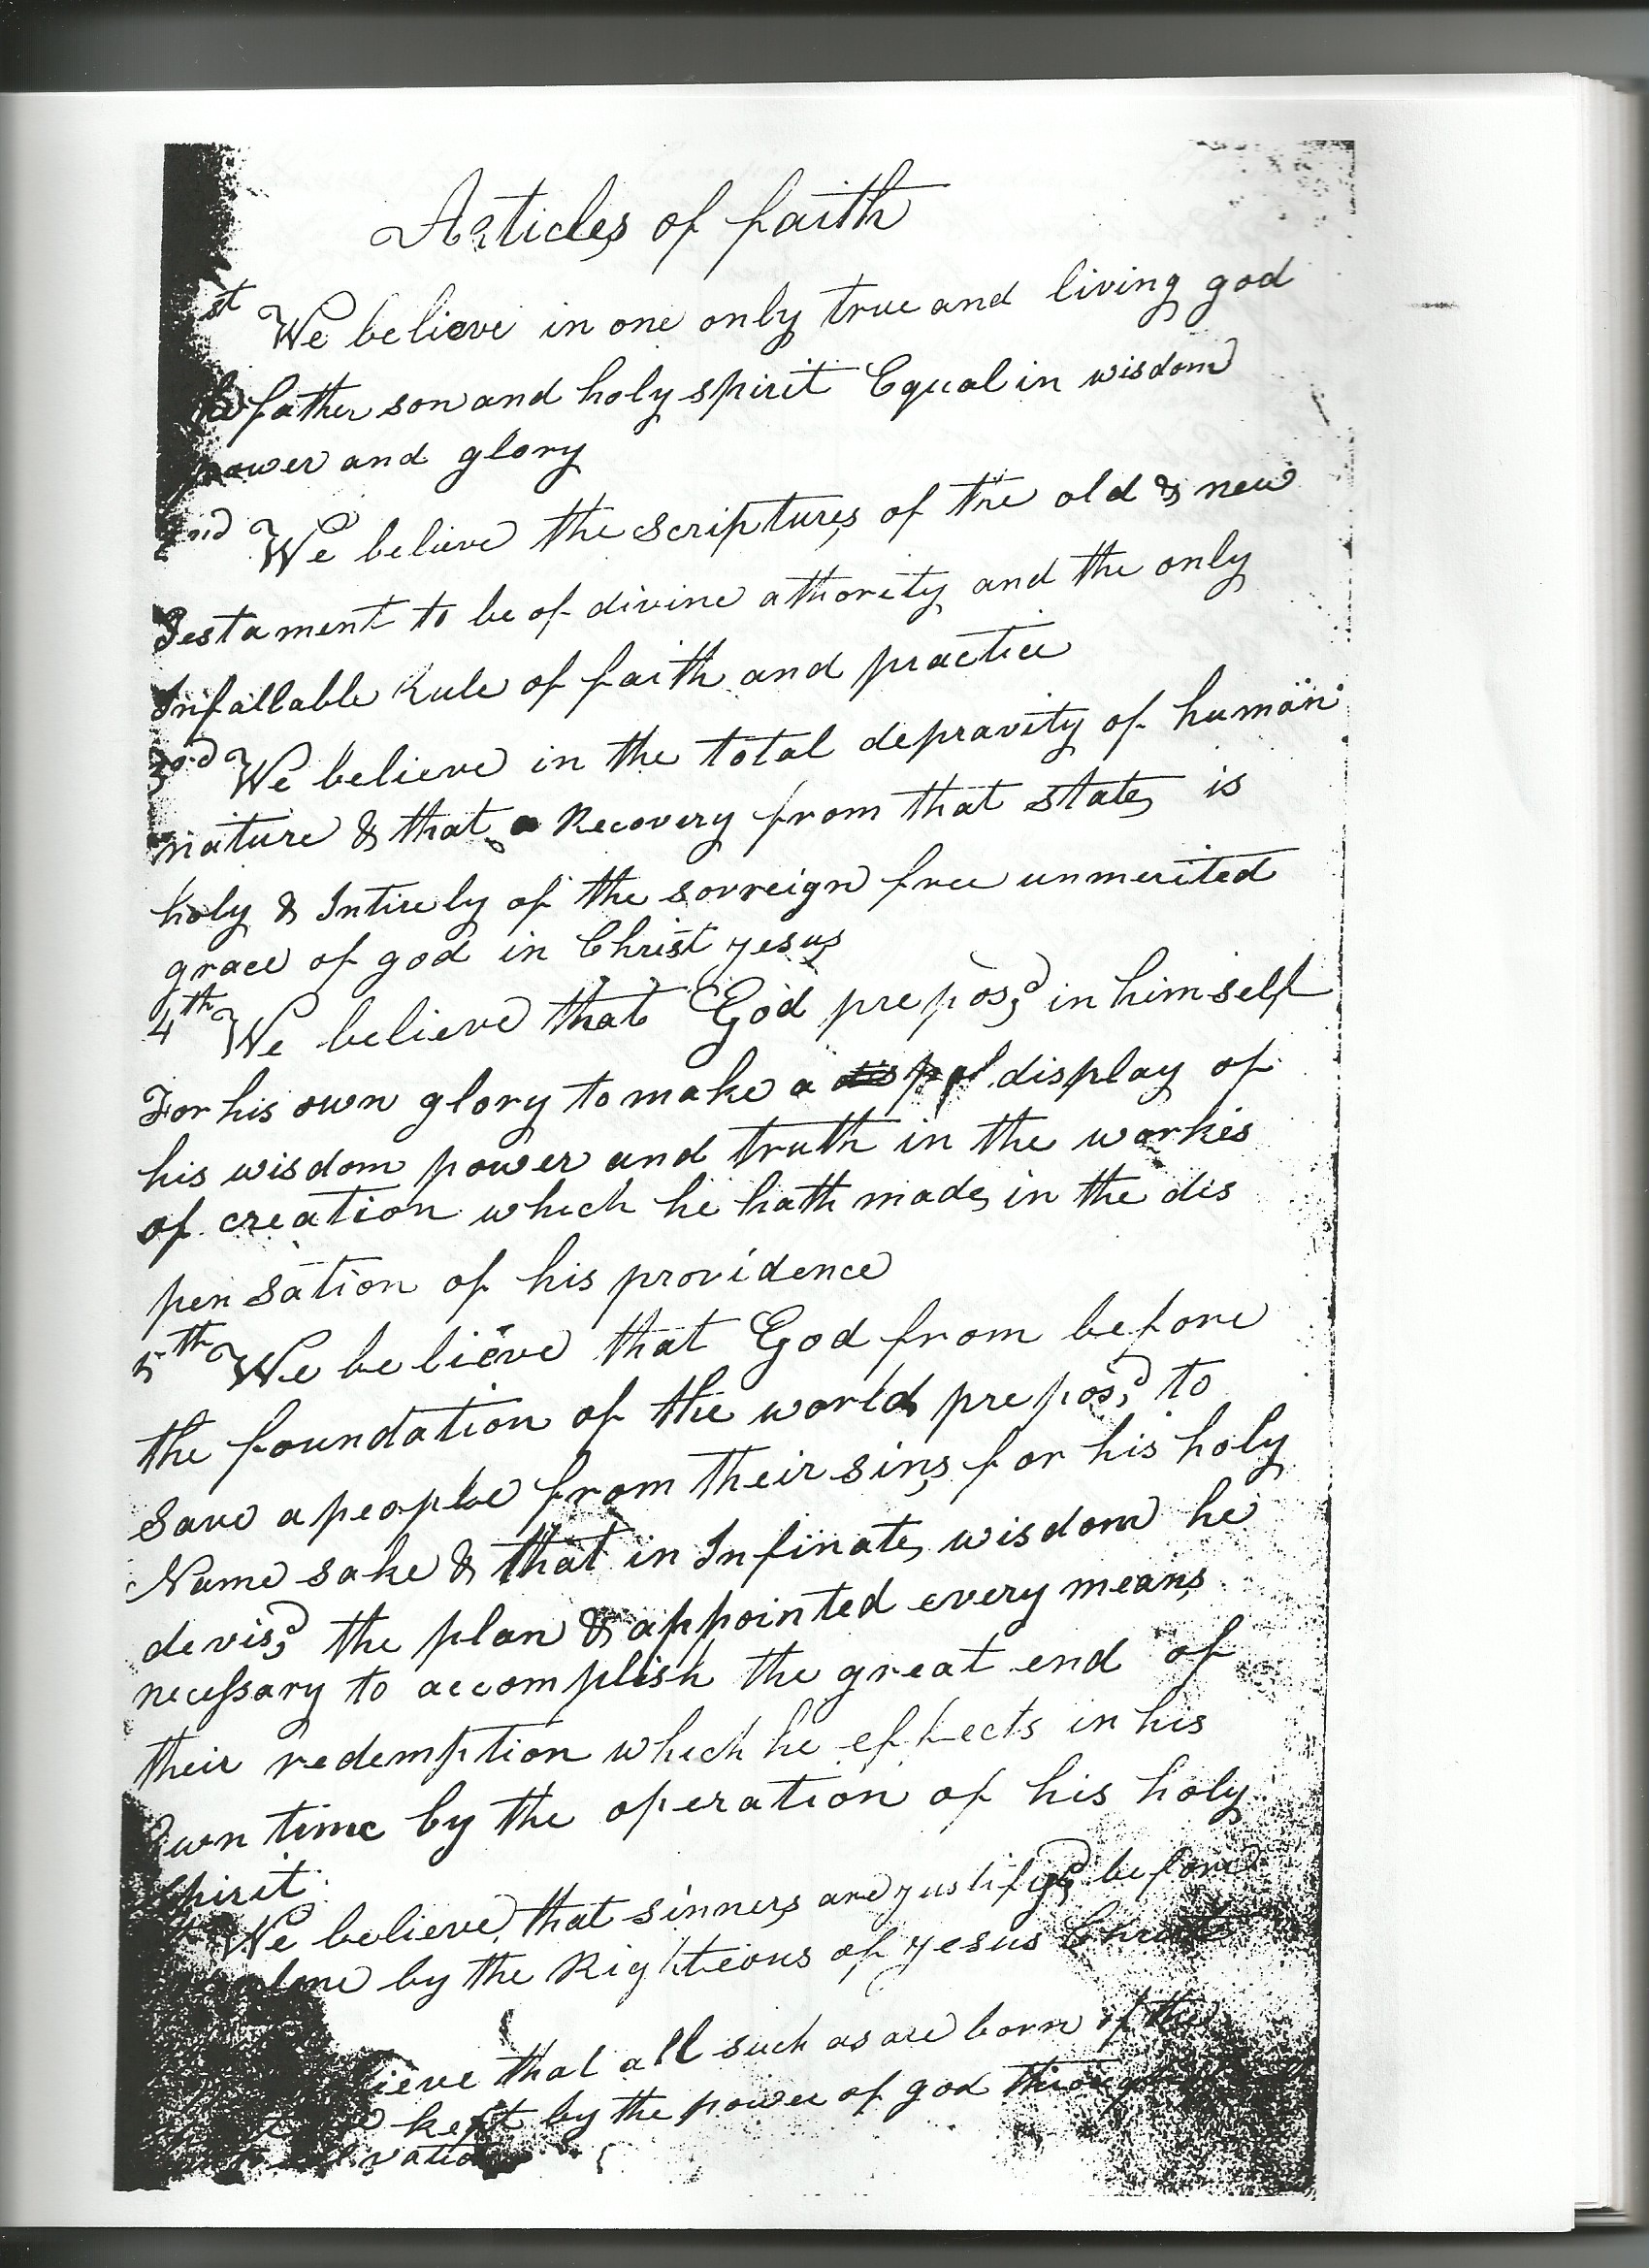 Articles of faith
st We believe in one only true and living god
father son and holy spirit Equal in wisdom
power and glory
2nd We believe the scriptures of the old & new
Testament to be of divine athority and the only
Infallable Rule of faith and practice
3rd We believe in the total depravity of human
nature & that a Recovery from that state is
holy & Intirely of the sovreign free unmerited
grace of god in Christ yesus
4th We believe that God prepos,d in himself
For his own glory to make a display of
his wisdom power and truth in the workes
of creation which he hath made in the dis
pensation of his providence
5th We believe that God from before
the foundation of the world prepos,d to
Save a people from their sins for his holy
Name sake & that in Infinate wisdom he
devis,d the plan & appointed every means
necessary to accomplish the great end of
their redemption which he effects in his
Own time by the operation of his holy
Spirit
We believe that sinners are yustify,d before
by the Righteous of yesus Christ
ieve that all such as are born of the
kept by the power of god through
vation